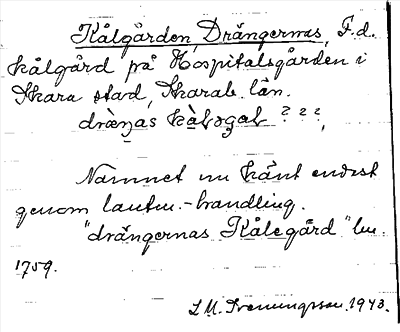 Kålgården, Drängernas, F.d.
kålgård på Hospitalsgården i
Skara stad, Skarab. län.
dräŋas kȧl.gaḷ ? ? ?
Namnet nu känt endast
genom lantm.-handling.
"drängernas Kålegård" lm.
1759.
1943.